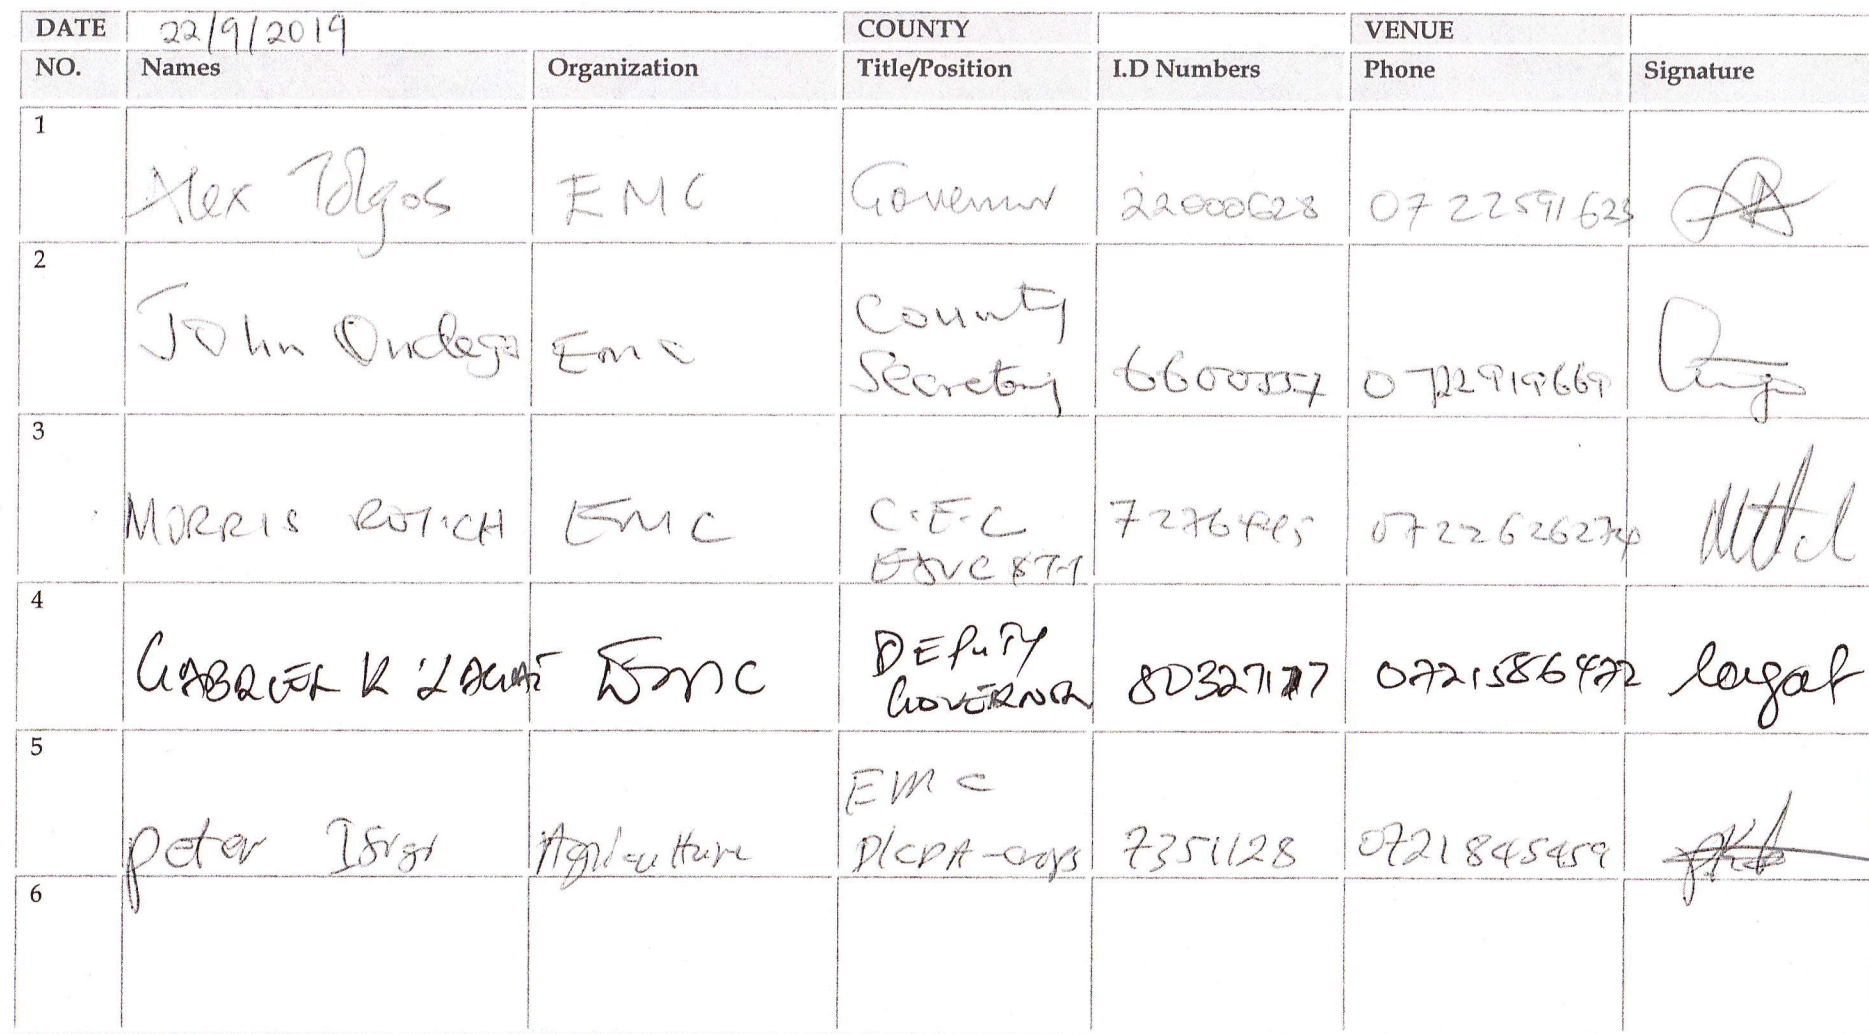 DATE 22/9/2019 COUNTY VENUE
NO. Names Organization Title/Position I.D Numbers Phone Signature
1 Alex Tolgos EMC Governor 22000628 0722591623
2 John Ondego EMC County Secretary 0722919669
3 MORRIS ROTICH EMC C.E.C 0722626274
4 GABRIEL K LAGAT EMC DEPUTY GOVERNOR 0721586472 lagat
5 peter Agriculture EMC 7351128 0721845459
6